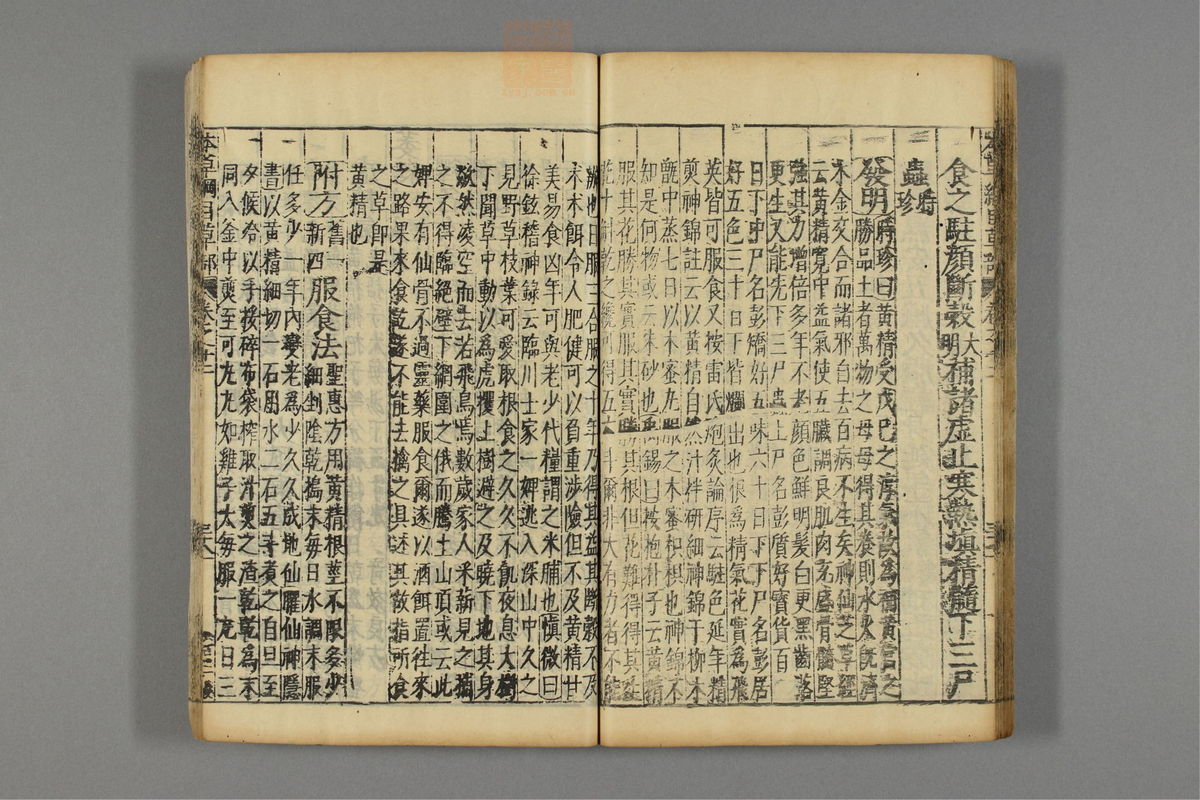 食之駐顏斷穀大明補諸虛止寒熱塡精髓下三尸
蟲時珍
發明時珍曰黃精受戊己之淳氣故爲補黃宮之
勝品土者萬物之母母得其養則水火旣濟
木金交合而諸邪自去百病不生矣神仙芝草經
云黃精寬中益氣使五臟調良肌肉充盛骨髓堅
強其力增倍多年不老顏色鮮明髮白更黑齒落
更生又能先下三尸蟲上尸名彭質好寶貨百
日下中尸名彭矯好五味六十日下下尸名彭居
好五色三十日下皆爛出也根爲精氣花實爲飛
英皆可服食又按雷氏炮炙論序云駐色延年精
煎神錦註云以黃精自然汁拌研細神錦于柳木
甑中蒸七日以木蜜丸服之木蜜枳椇也神錦不
知是何物或云朱砂也禹錫曰按抱朴子云黃精
服其花勝其實服其實勝其根但花難得得其生
花十斛乾之纔可得五六斗爾非大有力者不能
辦也日服三合服之十年乃得其益其斷穀不及
朮朮餌令人肥健可以負重涉險但不及黃精甘
美易食凶年可與老少代糧謂之米脯也愼微曰
徐鉉稽神錄云臨川士家一婢逃入深山中久之
見野草枝葉可愛取根食之久久不飢夜息大樹
下聞草中動以爲虎攫上樹避之及曉下地其身
欻然凌空而去若飛鳥焉數歲家人采薪見之捕
之不得臨絕壁下網圍之俄而騰上山頂或云此
婢安有仙骨不過靈藥服食爾遂以酒餌置往來
之路果來食訖遂不能去擒之具述其故指所食
之草卽是
黃精也
附方舊一新四服食法聖惠方用黃精根莖不限多少
細剉陰乾搗末每日水調末服
任多少一年內變老爲少久久成地仙臞仙神隱
書以黃精細切一石用水二石五斗煮之自旦至
夕候冷以手挼碎布袋榨取汁煎之渣乾爲末
同入釜中煎至可丸丸如雞子大每服一丸日三
本草綱目草部
卷之十二